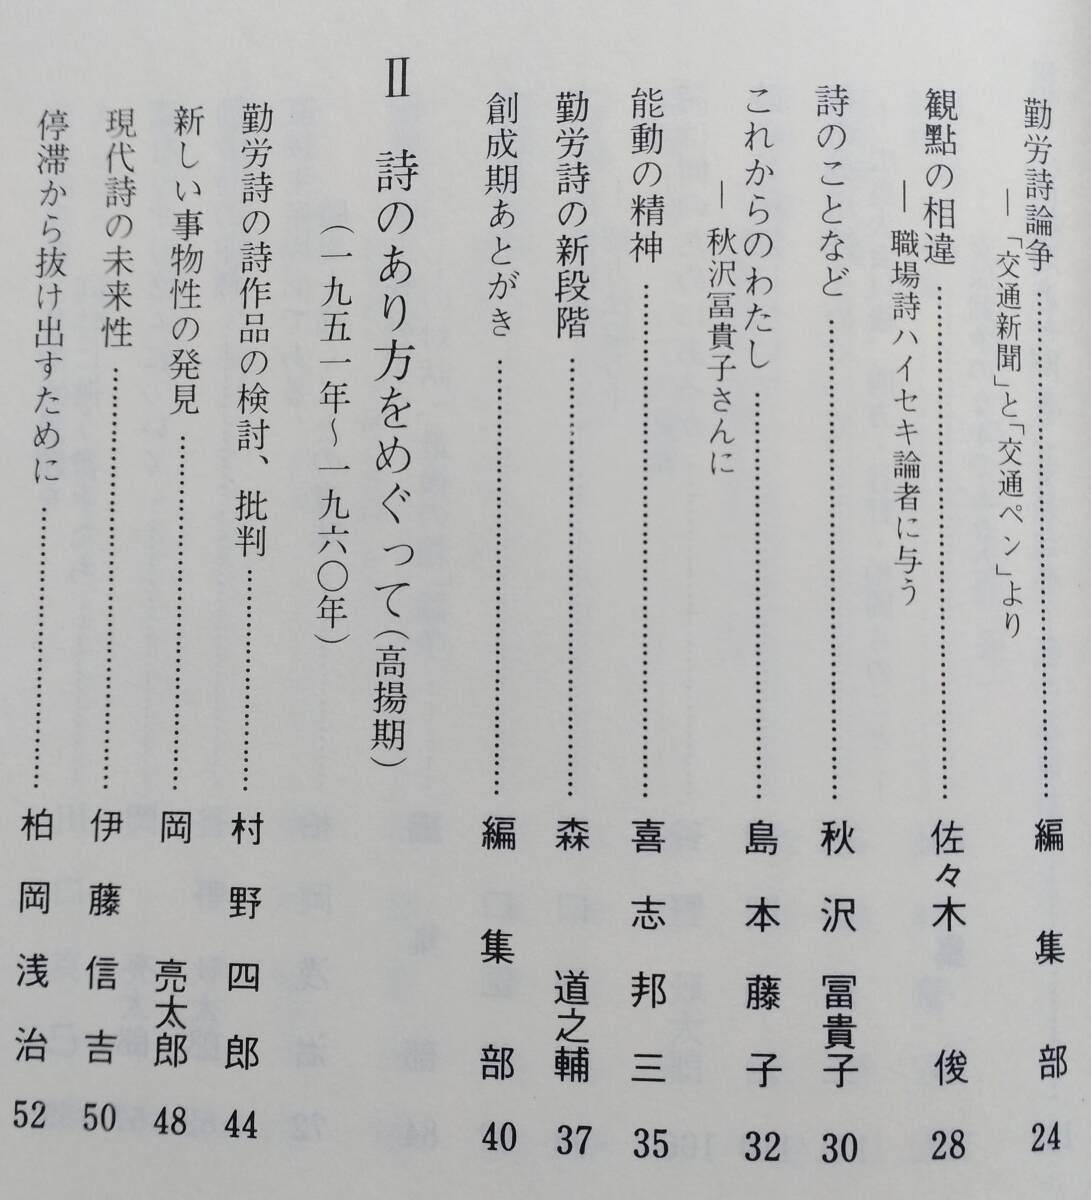 勤労詩論争……………………………………編集部 24
―「交通新聞」と「交通ペン」より
観點の相違……………………………………佐々木 俊 28
―職場詩ハイセキ論者に与う
詩のことなど…………………………………秋沢 冨貴子 30
これからのわたし……………………………島本藤子 32
―秋沢冨貴子さんに
能動の精神……………………………………喜志邦三 35
勤労詩の新段階………………………………森 道之輔 37
創成期あとがき………………………………編集部 40
Ⅱ 詩のあり方をめぐって(高揚期)
(一九五一年〜一九六〇年)
勤労詩の詩作品の検討、批判………………村野四郎 44
新しい事物性の発見…………………………岡 亮太郎 48
現代詩の未来性………………………………伊藤信吉 50
停滞から抜け出すために……………………柏岡浅治 52